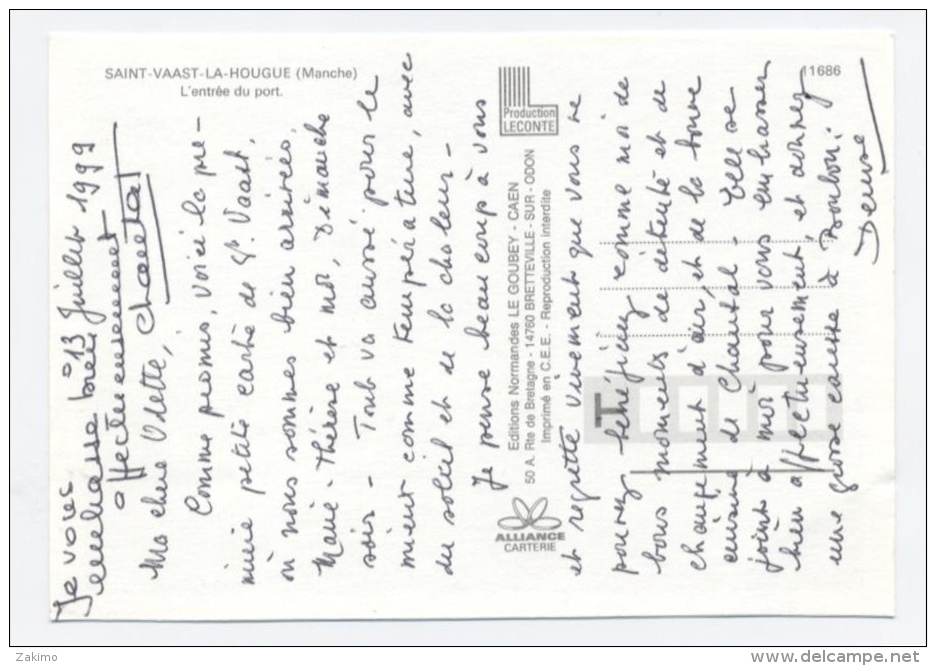 SAINT-VAAST-LA-HOUGUE (Manche)
L'entrée du port.
11686
Production
LECONTE
Editions Normandes LE GOUBEY - CAEN
50 A. Rte de Bretagne - 14760 BRETTEVILLE - SUR - ODON
Imprimé en C.E.E. - Reproduction interdite
ALLIANCE
CARTERIE
13 Juillet 1999
Ma chère Odette,
Comme promis, voici la pre-
mière petite carte de St. Vaast,
où nous sommes bien arrivées,
Marie-Thérère et moi, Dimanche
soir - Tout va aussi pour le
mieux comme température, avec
du soleil et de la chaleur -
Je pense beaucoup à vous
et regrette vivement que vous ne
pouvez bénéficiez comme moi de
bons moments de détente et de
changement d'air, et de la bonne
cuisine de Chantal - Elle se
joint à moi pour vous embrasser
bien affectueusement, et donnez
une grosse caresse à Bonbon!
Denise
Je vous
embrasse bien
affectueusement
Chantal
Zakimo
www.delcampe.net